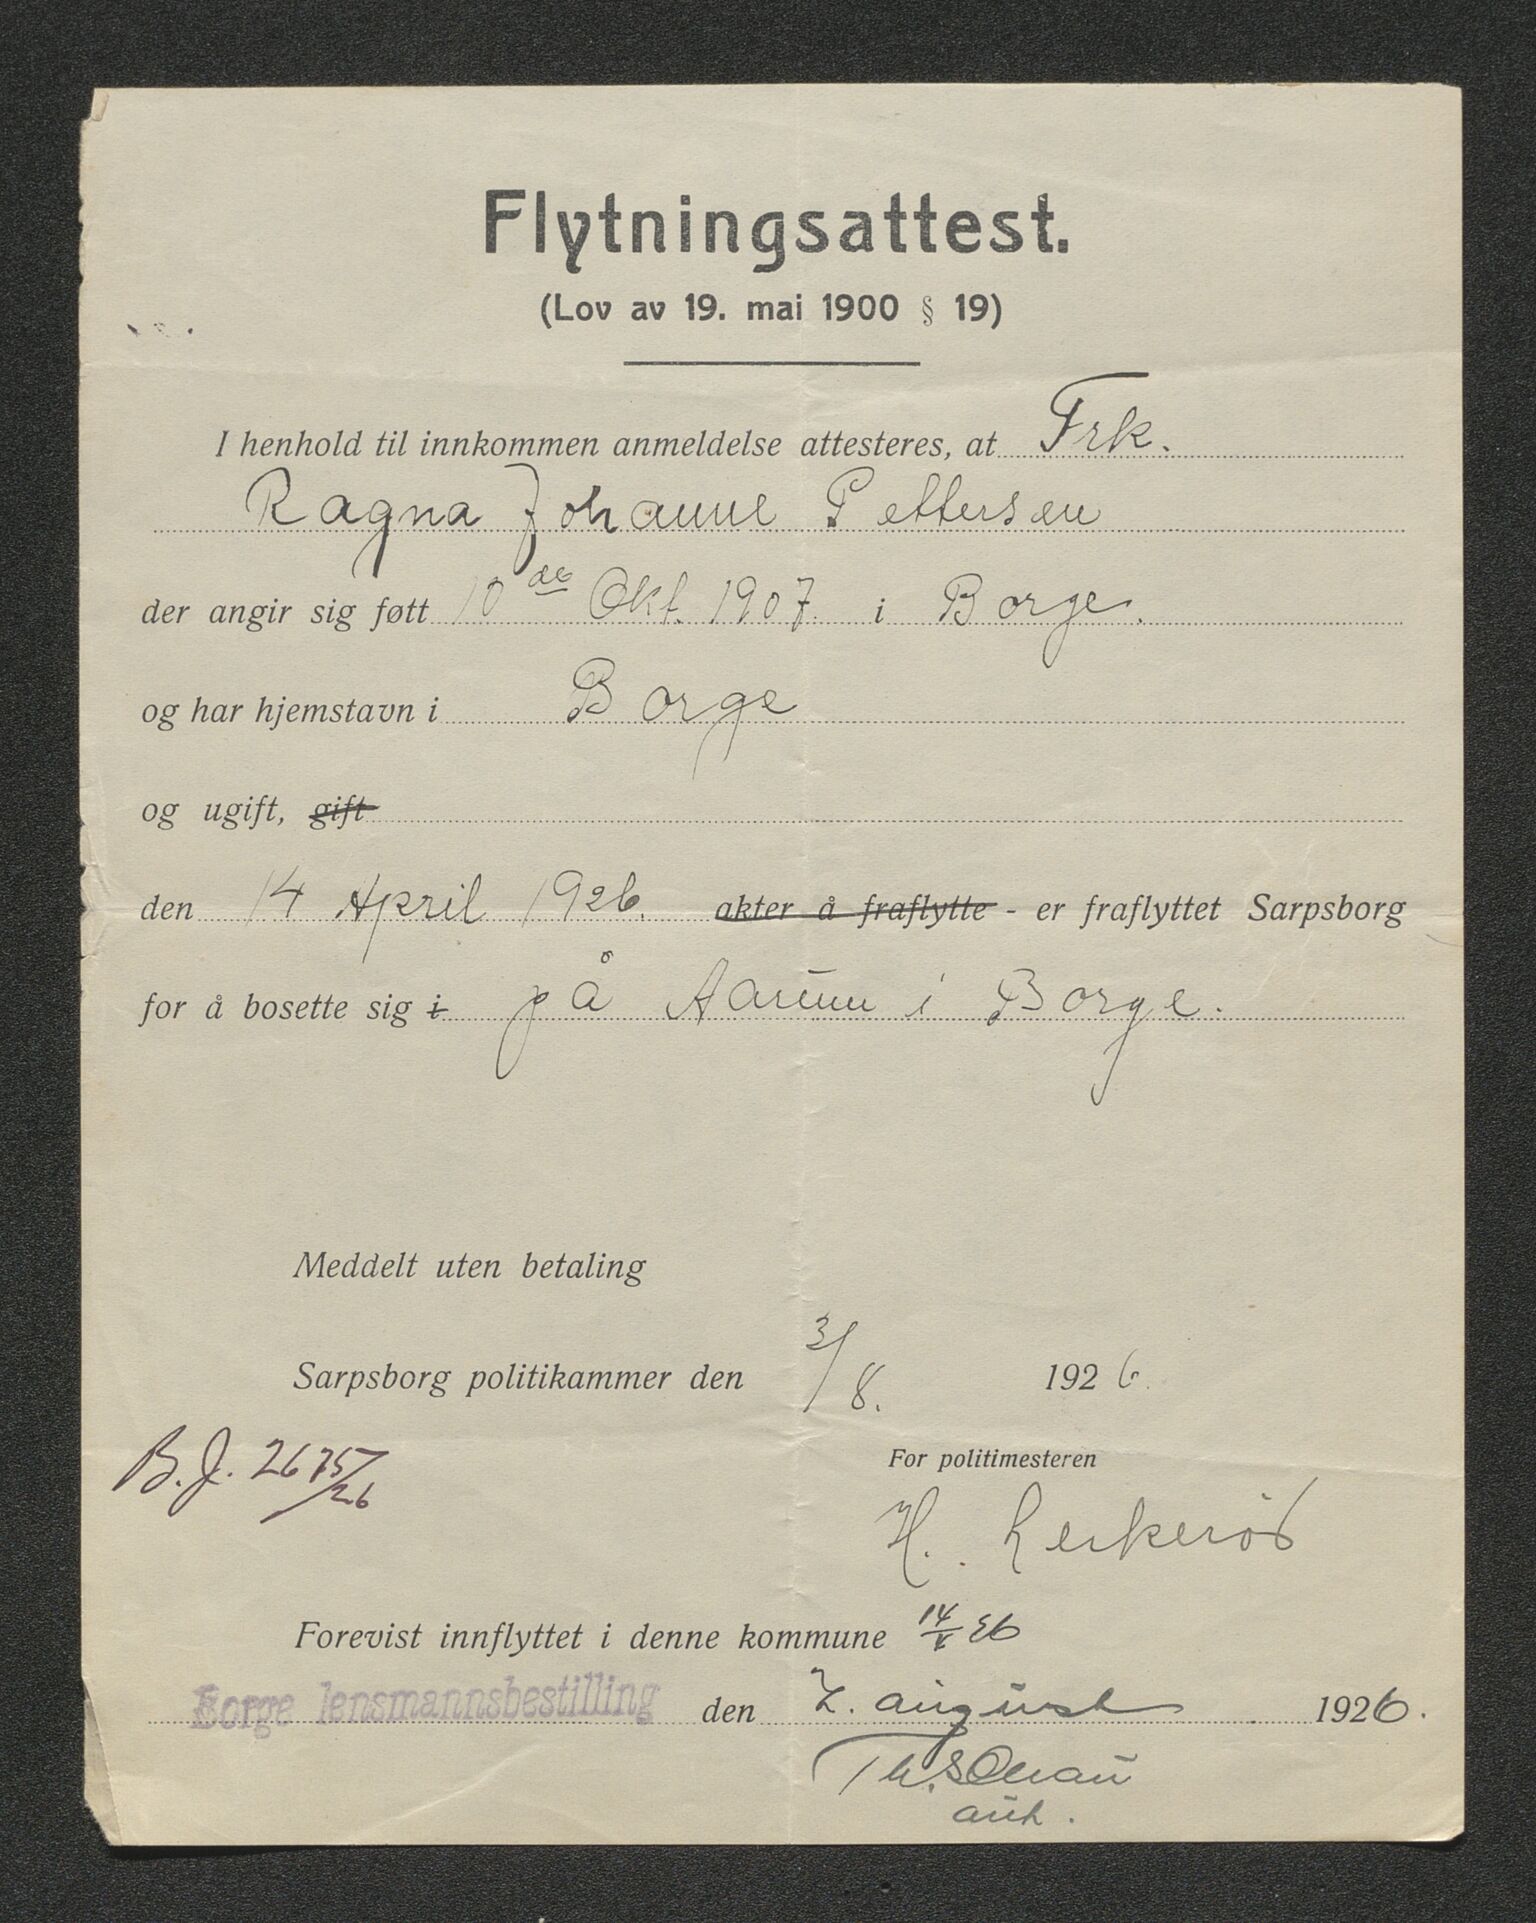 Flytningsattest.
(Lov av 19. mai 1900 § 19)
I henhold til innkommen anmeldelse attesteres, at Frk.
Ragna Johanne Pettersen
der angir sig føtt 10de Okt. 1907. i Borge.
og har hjemstavn i Borge
og ugift, gift
den 14 April 1926. akter å fraflytte - er fraflyttet Sarpsborg
for å bosette sig i på Aarum i Borge.
Meddelt uten betaling
Sarpsborg politikammer den 3/8. 1926.
B.J. 2675/26
For politimesteren
H. Lerkerød
Forevist innflyttet i denne kommune 14/ 26
Borge lensmannsbestilling den 7. august 1926.
Th.
aut.